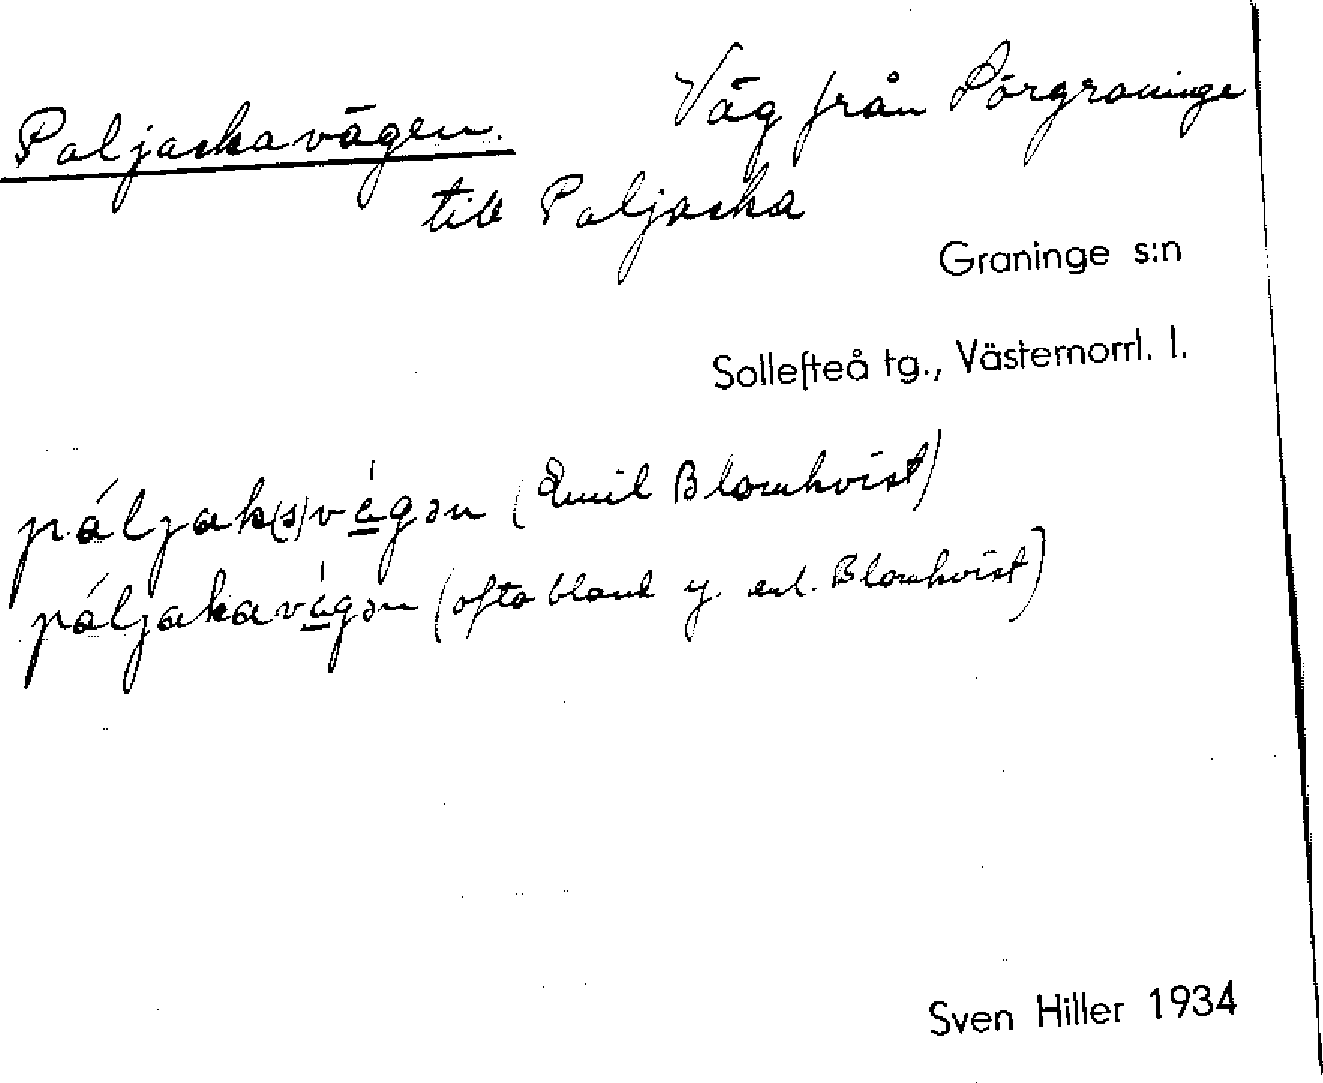 Paljackavägen. Väg från Pörgraninge
till Paljacka
Graninge s:n
Sollefteå tg., Västernorrl. l.
páljak(s)vágən (Emil Blomkvist)
páljakavágən (ofta bland y. enl. Blomkvist)
Sven Hiller 1934